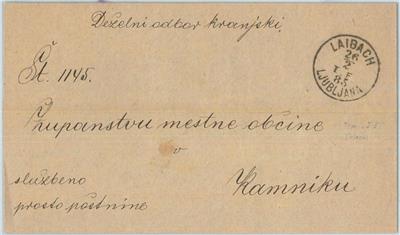 Deželni odbor kranjski.
Št. 1145.
LAIBACH
26
2
85
LJUBLJANA
Županstvu mestne občine
v
Kamniku
službeno
prosto poštnine